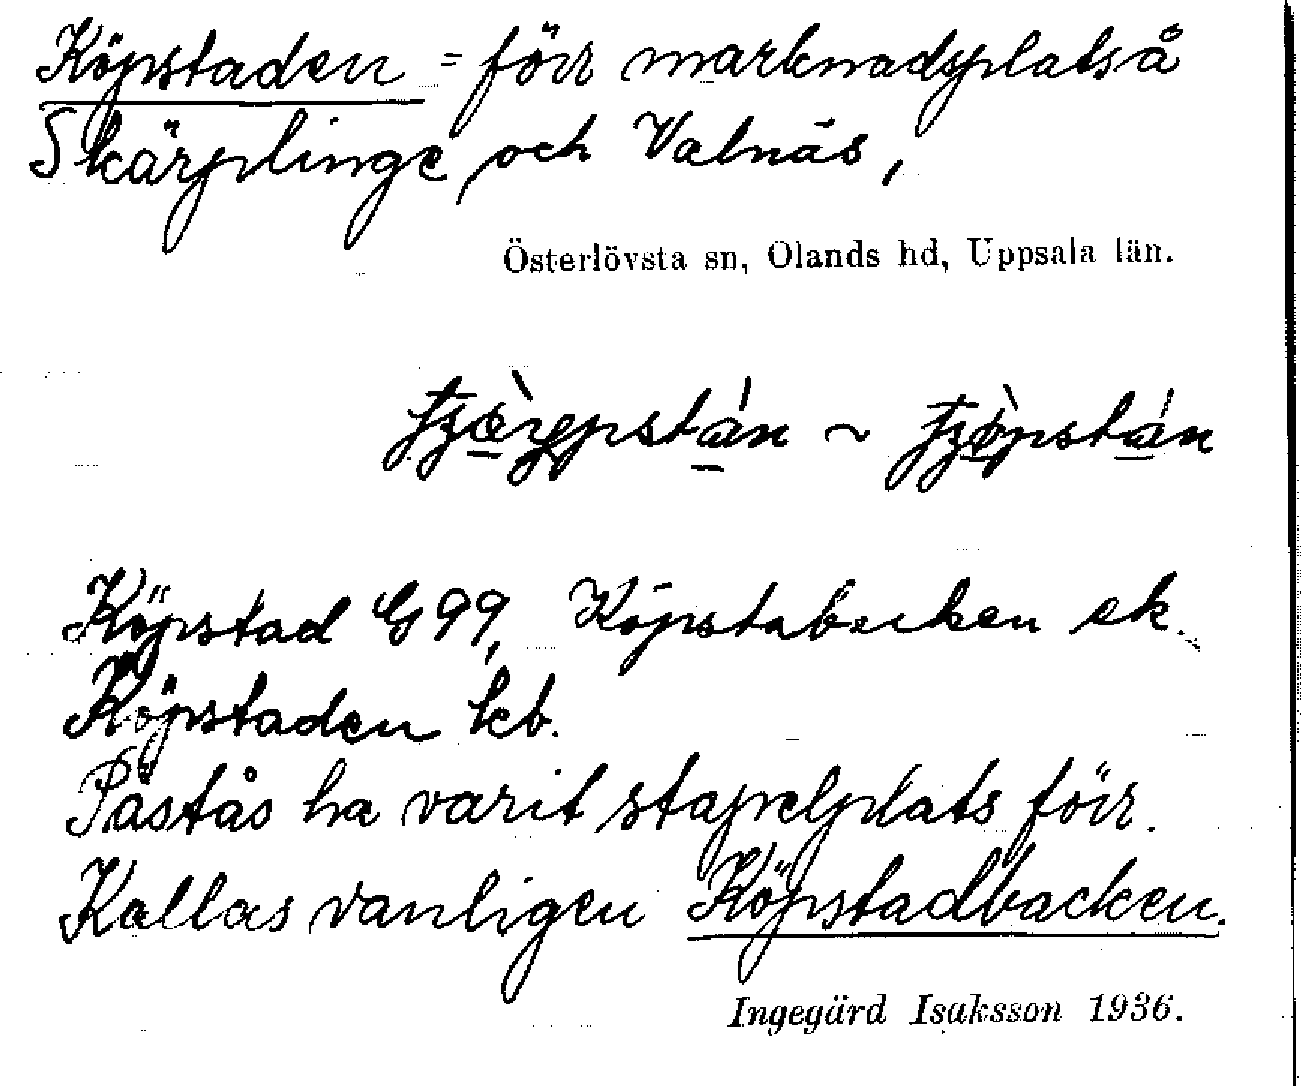 Köpstaden = förr marknadsplats å
Skärplinge och Valnäs,
Österlövsta sn, Olands hd, Uppsala län.
~
Köpstad G 99, Köpstabacken ek.
Köpstaden kb.
Påstås ha varit stapelplats förr.
Kallas vanligen Köpstadbacken.
Ingegärd Isaksson 1936.